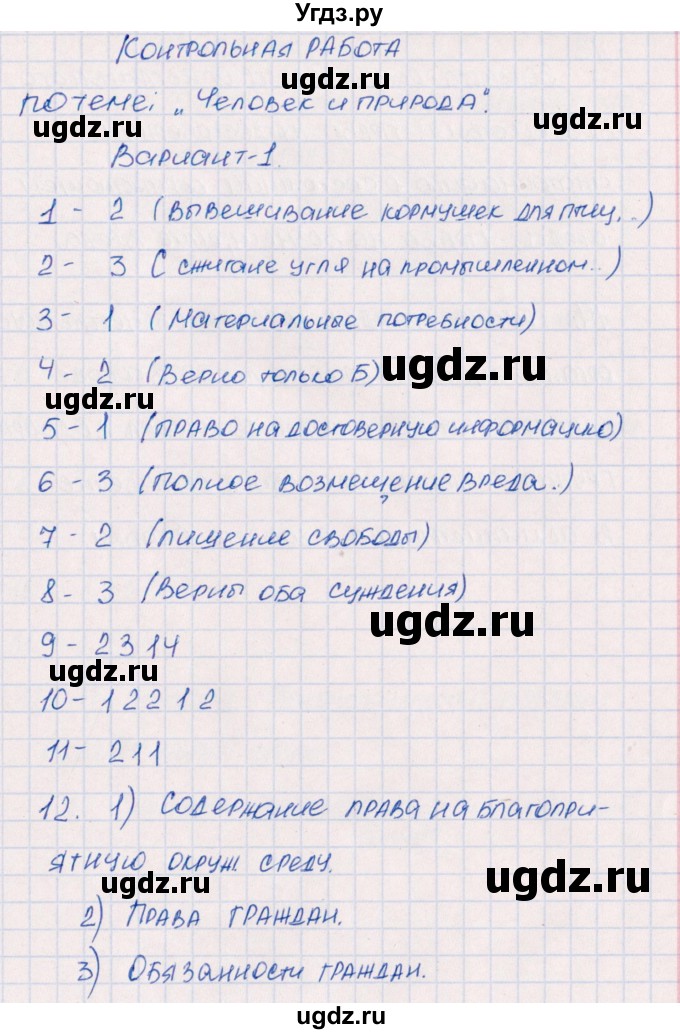 Угдз.ру
КОНТРОЛЬНАЯ РАБОТА
ugdz.ru
ПО ТЕМЕ: „ЧЕЛОВЕК И ПРИРОДА".
ugdz.ru
ugdz.ru
ВАРИАНТ-1.
1 - 2 (ВЫВЕШИВАНИЕ КОРМУШЕК ДЛЯ ПТИЦ...)
ugdz.ru
2 - 3 (СЖИГАНЕ УГЛЯ НА ПРОМЫШЛЕННОМ..)
ugdz.ru
3 - 1 (МАТЕРИАЛЬНЫЕ ПОТРЕБНОСТИ)
4 - 2 (ВЕРНО ТОЛЬКО Б)
ugdz.ru
ugdz.ru
5 - 1 (ПРАВО НА ДОСТОВЕРНУЮ ИНФОРМАЦИЮ)
6 - 3 (ПОЛНОЕ ВОЗМЕЩЕНИЕ ВРЕДА.)
ugdz.ru
7 - 2 (ЛИШЕНИЕ СВОБОДЫ)
8 - 3 (ВЕРНЫ ОБА СУЖДЕНИЯ)
ugdz.ru
9 - 2 3 1 4
ugdz.ru
10 - 1 2 2 1 2
11 - 2 1 1
ugdz.ru
12. 1) СОДЕРЖАНИЕ ПРАВА НА БЛАГОПРИ-
ЯТНУЮ ОКРУЖ СРЕДУ.
ugdz.ru
ugdz.ru
2) ПРАВА ГРАЖДАН.
3) ОБЯЗАННОСТИ ГРАЖДАН.
ugdz.ru